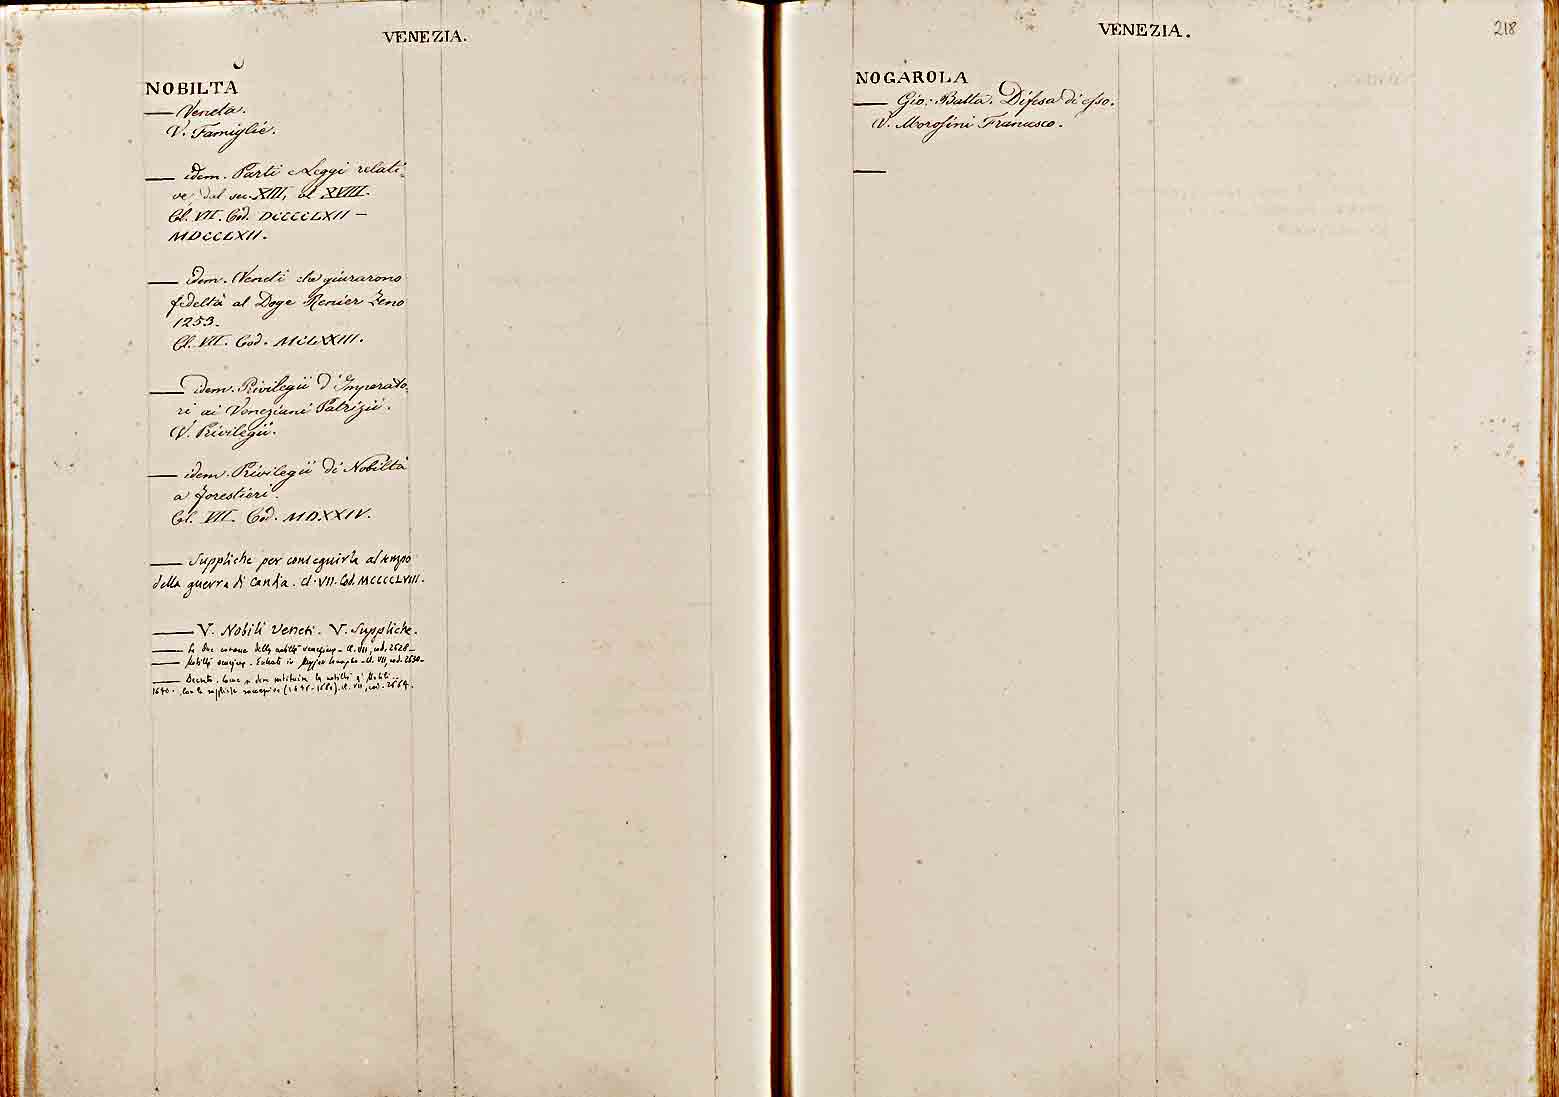 VENEZIA.
NOBILTÀ
— Veneta.
V. Famiglie.
— idem. Parti e Leggi relati-
ve, dal sec. XIII, al XVIII.
Cl. VII. Cod. DCCCCLXII —
MDCCLXII.
— idem. Veneti che giurarono
fedeltà al Doge Renier Zeno
1253.
Cl. VII. Cod. MCLXXIII.
— idem. Privilegii d'Imperato-
ri ai Veneziani Patrizii.
V. Privilegii.
— idem. Privilegii di Nobiltà
a forestieri.
Cl. VII. Cod. MDXXIV.
— Suppliche per conseguirla al tempo
della guerra di Candia. cl. VII. Cod. MCCCCLVIII.
— V. Nobili Veneti. V. Suppliche.
— Le due corone della nobiltà - cl. VII, cod. 2628 -
— Nobiltà - cl. VII, cod. 2630 -
— Decreto. Come si
1640. Con le suppliche (1646-1680). cl. VII, cod. 2664.
VENEZIA.
218
NOGAROLA
— Gio: Batta. Difesa di esso.
V. Morosini Francesco.
—